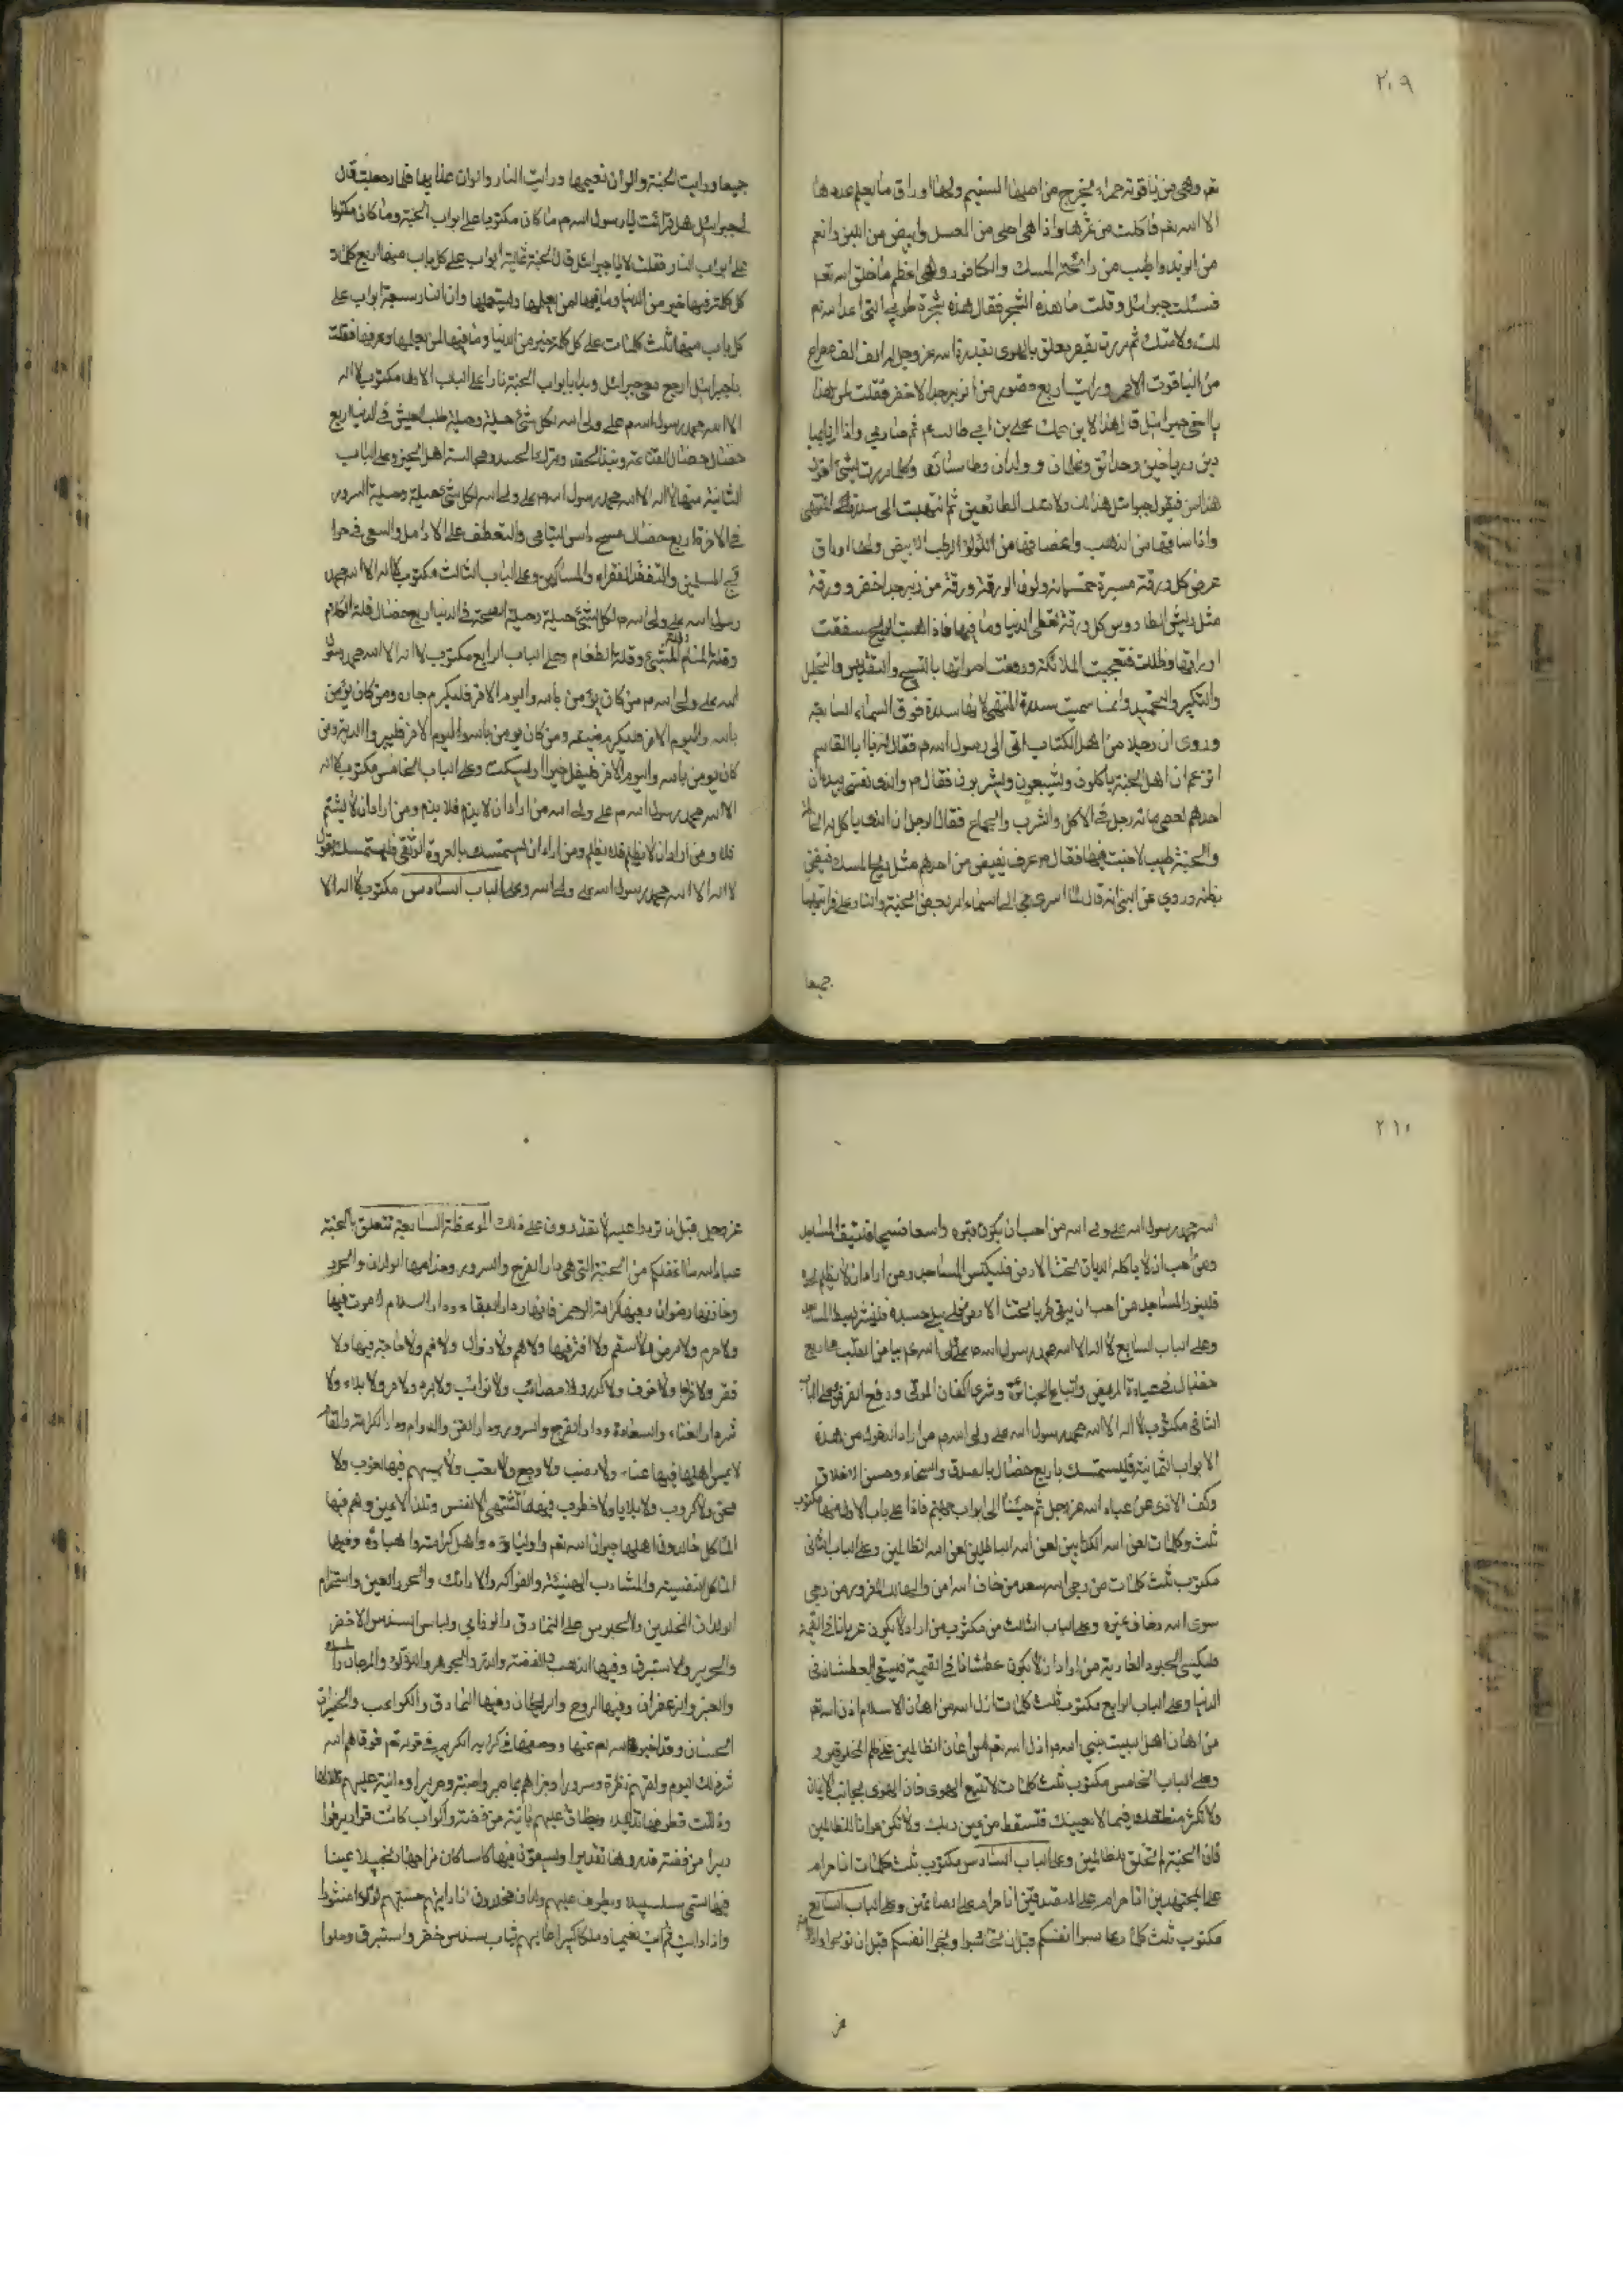 ٢٠٩
تعم وهي من ياقوتة حمراء يخرج من اصلها التسنيم ولها اوراق ما يعلم عددها
الا الله تعم فاكلت من ثمرها واذا هي احلى من العسل وابيض من اللبن وانعم
من الزبد واطيب من رائحة المسك والكافور وهي اعظم ما خلق الله تعم
فسئلت جبرائيل وقلت ما هذه الشجر فقال هذه شجرة طوبى التي اعد الله تعم
لك ولامتك ثم مررت بقصر معلق بالهوى بقدرة الله عز وجل له الف الف مصراع
من الياقوت الاحمر ورايت اربع قصور من الزبرجد الاخضر فقلت لمن هذا
يا اخي جبرائيل قال هذا لابن عمك علي بن ابي طالب عم ثم صار بي واذا
ورياحين وحدائق وغلمان وولدان وكلما مررت بشئ اقول
هذا لمن فيقول جبرائيل هذا لك ولامتك الطائعين ثم انتهيت الى سدرة المنتهى
واذا ساقها من الذهب واغصانها من اللؤلؤ الرطب الابيض ولها اوراق
عرض كل ورقة مسيرة خمسمائة ولون الورقة ورقة من زبرجد اخضر وورقة
مثل ريش الطاووس كل ورقة تغطى الدنيا وما فيها فاذا هبت الريح سفقت
اوراقها وظللت فتعجبت الملائكة ورفعت اصواتها بالتسبيح والتقديس والتهليل
والتكبير والتحميد وانما سميت سدرة المنتهى لانها سدرة فوق السماء السابعة
وروى ان رجلا من اهل الكتاب اتى الى رسول الله م فقال له يا ابا القاسم
اتزعم ان اهل الجنة ياكلون ويشبعون ويشربون فقال م والذى نفسى بيده ان
احدهم لعطى مائة رجل في الاكل والشرب والجماع فقال الرجل ان الذى ياكل له الحاجة
والجنة طيب لا خبث فيها فقال م عرف يفيض من احدهم مثل ريح المسك فيضمر
بطنه وروي عن النبى انه قال لما اسرى بي الى السماء امر بعرض الجنة والنار على فرايتهما
جميعا
جميعا ورايت الجنة والوان نعيمها ورايت النار والوان عذابها فلما رجعت قال
لجبرائيل هل قرائت يا رسول الله م ما كان مكتوبا على ابواب الجنة وما كان مكتوبا
على ابواب النار فقلت لا يا جبرائيل قال الجنة ثمانية ابواب على كل باب منها اربع كلمات
كل كلمة فيها خير من الدنيا وما فيها لمن يعلمها ويستعملها وان النار سبعة ابواب على
كل باب منها ثلث كلمات على كل كلمة خير من الدنيا وما فيها لمن يعلمها وعرفها فقلت
يا جبرائيل ارجع معي جبرائيل وبدا بابواب الجنة فاذا على الباب الاول مكتوب لا اله
الا الله محمد رسول الله م علي ولي الله لكل شئ حيلة وحيلة طلب العيش في الدنيا اربع
خصال خصال القناعة ونبذ الحقد وترك الحسد ومجالسة اهل الخير وعلى الباب
الثانية منها لا اله الا الله محمد رسول الله م علي ولي الله لكل شئ حيلة وحيلة السرور
في الاخرة اربع خصال مسح راس اليتامى والتعطف على الارامل والسعى في حوا
ئج المسلمين والتفقد الفقراء والمساكين وعلى الباب الثالث مكتوب لا اله الا الله محمد
رسول الله علي ولي الله م لكل شئ حيلة وحيلة الصحة في الدنيا اربع خصال قلة الكلام
وقلة المنام وقلة المشئ وقلة الطعام وعلى الباب الرابع مكتوب لا اله الا الله محمد رسول
الله علي ولي الله م من كان يؤمن بالله واليوم الاخر فليكرم جاره ومن كان يؤمن
بالله واليوم الاخر فليكرم ضيفه ومن كان يومن بالله واليوم الاخر فليبر والديه ومن
كان يومن بالله واليوم الاخر فليقل خيرا او ليسكت وعلى الباب الخامس مكتوب لا اله
الا الله محمد رسول الله م علي ولي الله من اراد ان لا يذم فلا يذم ومن اراد ان لا يشتم
فلا ومن اراد ان لا يظلم فلا يظلم ومن اراد ان يستمسك بالعروة الوثقى فليستمسك بقول
لا اله الا الله محمد رسول الله علي ولي الله وعلى الباب السادس مكتوب لا اله الا
٢١٠
الله محمد رسول الله علي ولي الله من احب ان يكون قبره واسعا فسيحا المساجد
ومن احب ان لا ياكله الديدان تحت الارض فليكنس المساجد ومن اراد ان لا يظلم لحده
فلينور المساجد من احب ان يبقى طريا تحت الارض فلا يبلى جسده فليشر بسط المساجد
وعلى الباب السابع لا اله الا الله محمد رسول الله م علي ولي الله م بياض القلب في اربع
خصال في عيادة المريض واتباع الجنائز وشرى اكفان الموتى ودفع القرض وعلى الباب
الثامن مكتوب لا اله الا الله محمد رسول الله علي ولي الله م من اراد الدخول من هذه
الابواب الثمانية فليستمسك باربع خصال بالصدق والسخاء وحسن الاخلاق
وكف الاذى عن عباد الله عز وجل ثم جئنا الى ابواب جهنم فاذا على باب الاول منها مكتوب
ثلث كلمات لعن الله الكذابين لعن الله الباخلين لعن الله الظالمين وعلى الباب الثانى
مكتوب ثلث كلمات من رجى الله سعد من خاف الله امن والهالك المغرور من رجى
سوى الله وخاف غيره وعلى الباب الثالث من مكتوب من اراد لا يكون عريانا في القيمة
فليكسى الجلود العارية من اراد ان لا يكون عطشانا في القيمة فليسقى العطشان في
الدنيا وعلى الباب الرابع مكتوب ثلث كلمات اذل الله من اهان الاسلام اذل الله تعم
من اهان اهل البيت نبي الله م اذل الله تعم من اعان الظالمين على ظلم المخلوقين
وعلى الباب الخامس مكتوب ثلث كلمات لا تتبع الهوى فان الهوى يجانب الايمان
ولا تكثر منطقك فيما لا يعينك فتسقط من عين ربك ولا تكن عوانا للظالمين
فان الجنة لم تخلق للظالمين وعلى الباب السادس مكتوب ثلث كلمات انا حرام
على المجتهدين انا حرام على المتصدقين انا حرام على الصائمين وعلى الباب السابع
مكتوب ثلث كلمات حاسبوا انفسكم قبل ان تحاسبوا ووبخوا انفسكم قبل ان توبخوا
عز
عز وجل قبل ان تردوا عليه لا تقدرون على ذلك الموعظة السابعة تتعلق بالجنة
عباد الله ما اغفلكم من الجنة التي هي دار الفرح والسرور وخدامها الولدان والحور
وخازنها رضوان وفيها كرامة الرحمن فانها دار البقاء ودار السلام لا موت فيها
ولا هرم ولا مرض ولا سقم ولا فيها ولا هم ولا زوال ولا غم ولا حاجة فيها ولا
فقر ولا ولا خوف ولا كدر ولا مصائب ولا نوائب ولا برد ولا حر ولا بلاء ولا
شر دار الغناء والسعادة ودار الفرح والسرور ودار العز والدوام ودار الكرامة والمقام
لا يمس اهلها فيها عناء ولا نصب ولا وجع ولا تعب ولا يمسهم فيها لغوب ولا
محن ولا كروب ولا بلايا ولا خطوب فيها ما تشتهي الانفس وتلذ الاعين وهم فيها
خالدون اهلها جيران الله تعم واولياؤه واهل كرامته واحباؤه وفيها
الماكل النفيسة والمشارب الهنيئة والفواكه والارائك والحور العين واستخدام
الولدان المخلدين والجلوس على النمارق والزرابي ولباس السندس الاخضر
والحرير والاستبرق وفيها الذهب والفضة والدر والجوهر واللؤلؤ والمرجان
والعنبر والزعفران وفيها الروح والريحان وفيها النمارق والكواعب والخيرات
الحسان وقد اخبر الله تعم عنها ووصفها في كتابه الكريم في قوله تعم فوقاهم الله
شر ذلك اليوم ولقيهم نظرة وسرورا وجزاهم بما صبروا جنة وحريرا ودانية عليهم ظلالها
وذللت قطوفها تذليلا ويطاف عليهم بانية من فضة واكواب كانت قواريرا قوا
ريرا من فضة قدروها تقديرا ويسقون فيها كاسا كان مزاجها زنجبيلا عينا
فيها تسمى سلسبيلا ويطوف عليهم ولدان مخلدون اذا رايتهم حسبتهم لؤلؤا منثورا
واذا رايت ثم رايت نعيما وملكا كبيرا عاليهم ثياب سندس خضر واستبرق وحلوا